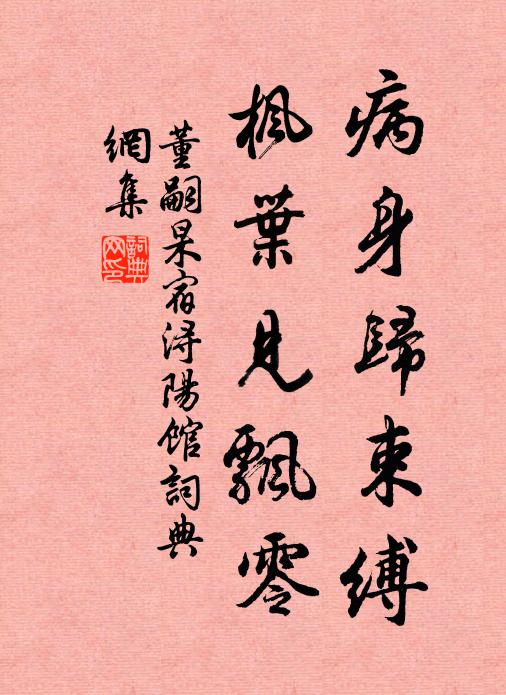 病身歸束縛
楓葉見飄零
董嗣杲宿浔陽館詞典
網集
詞典網印